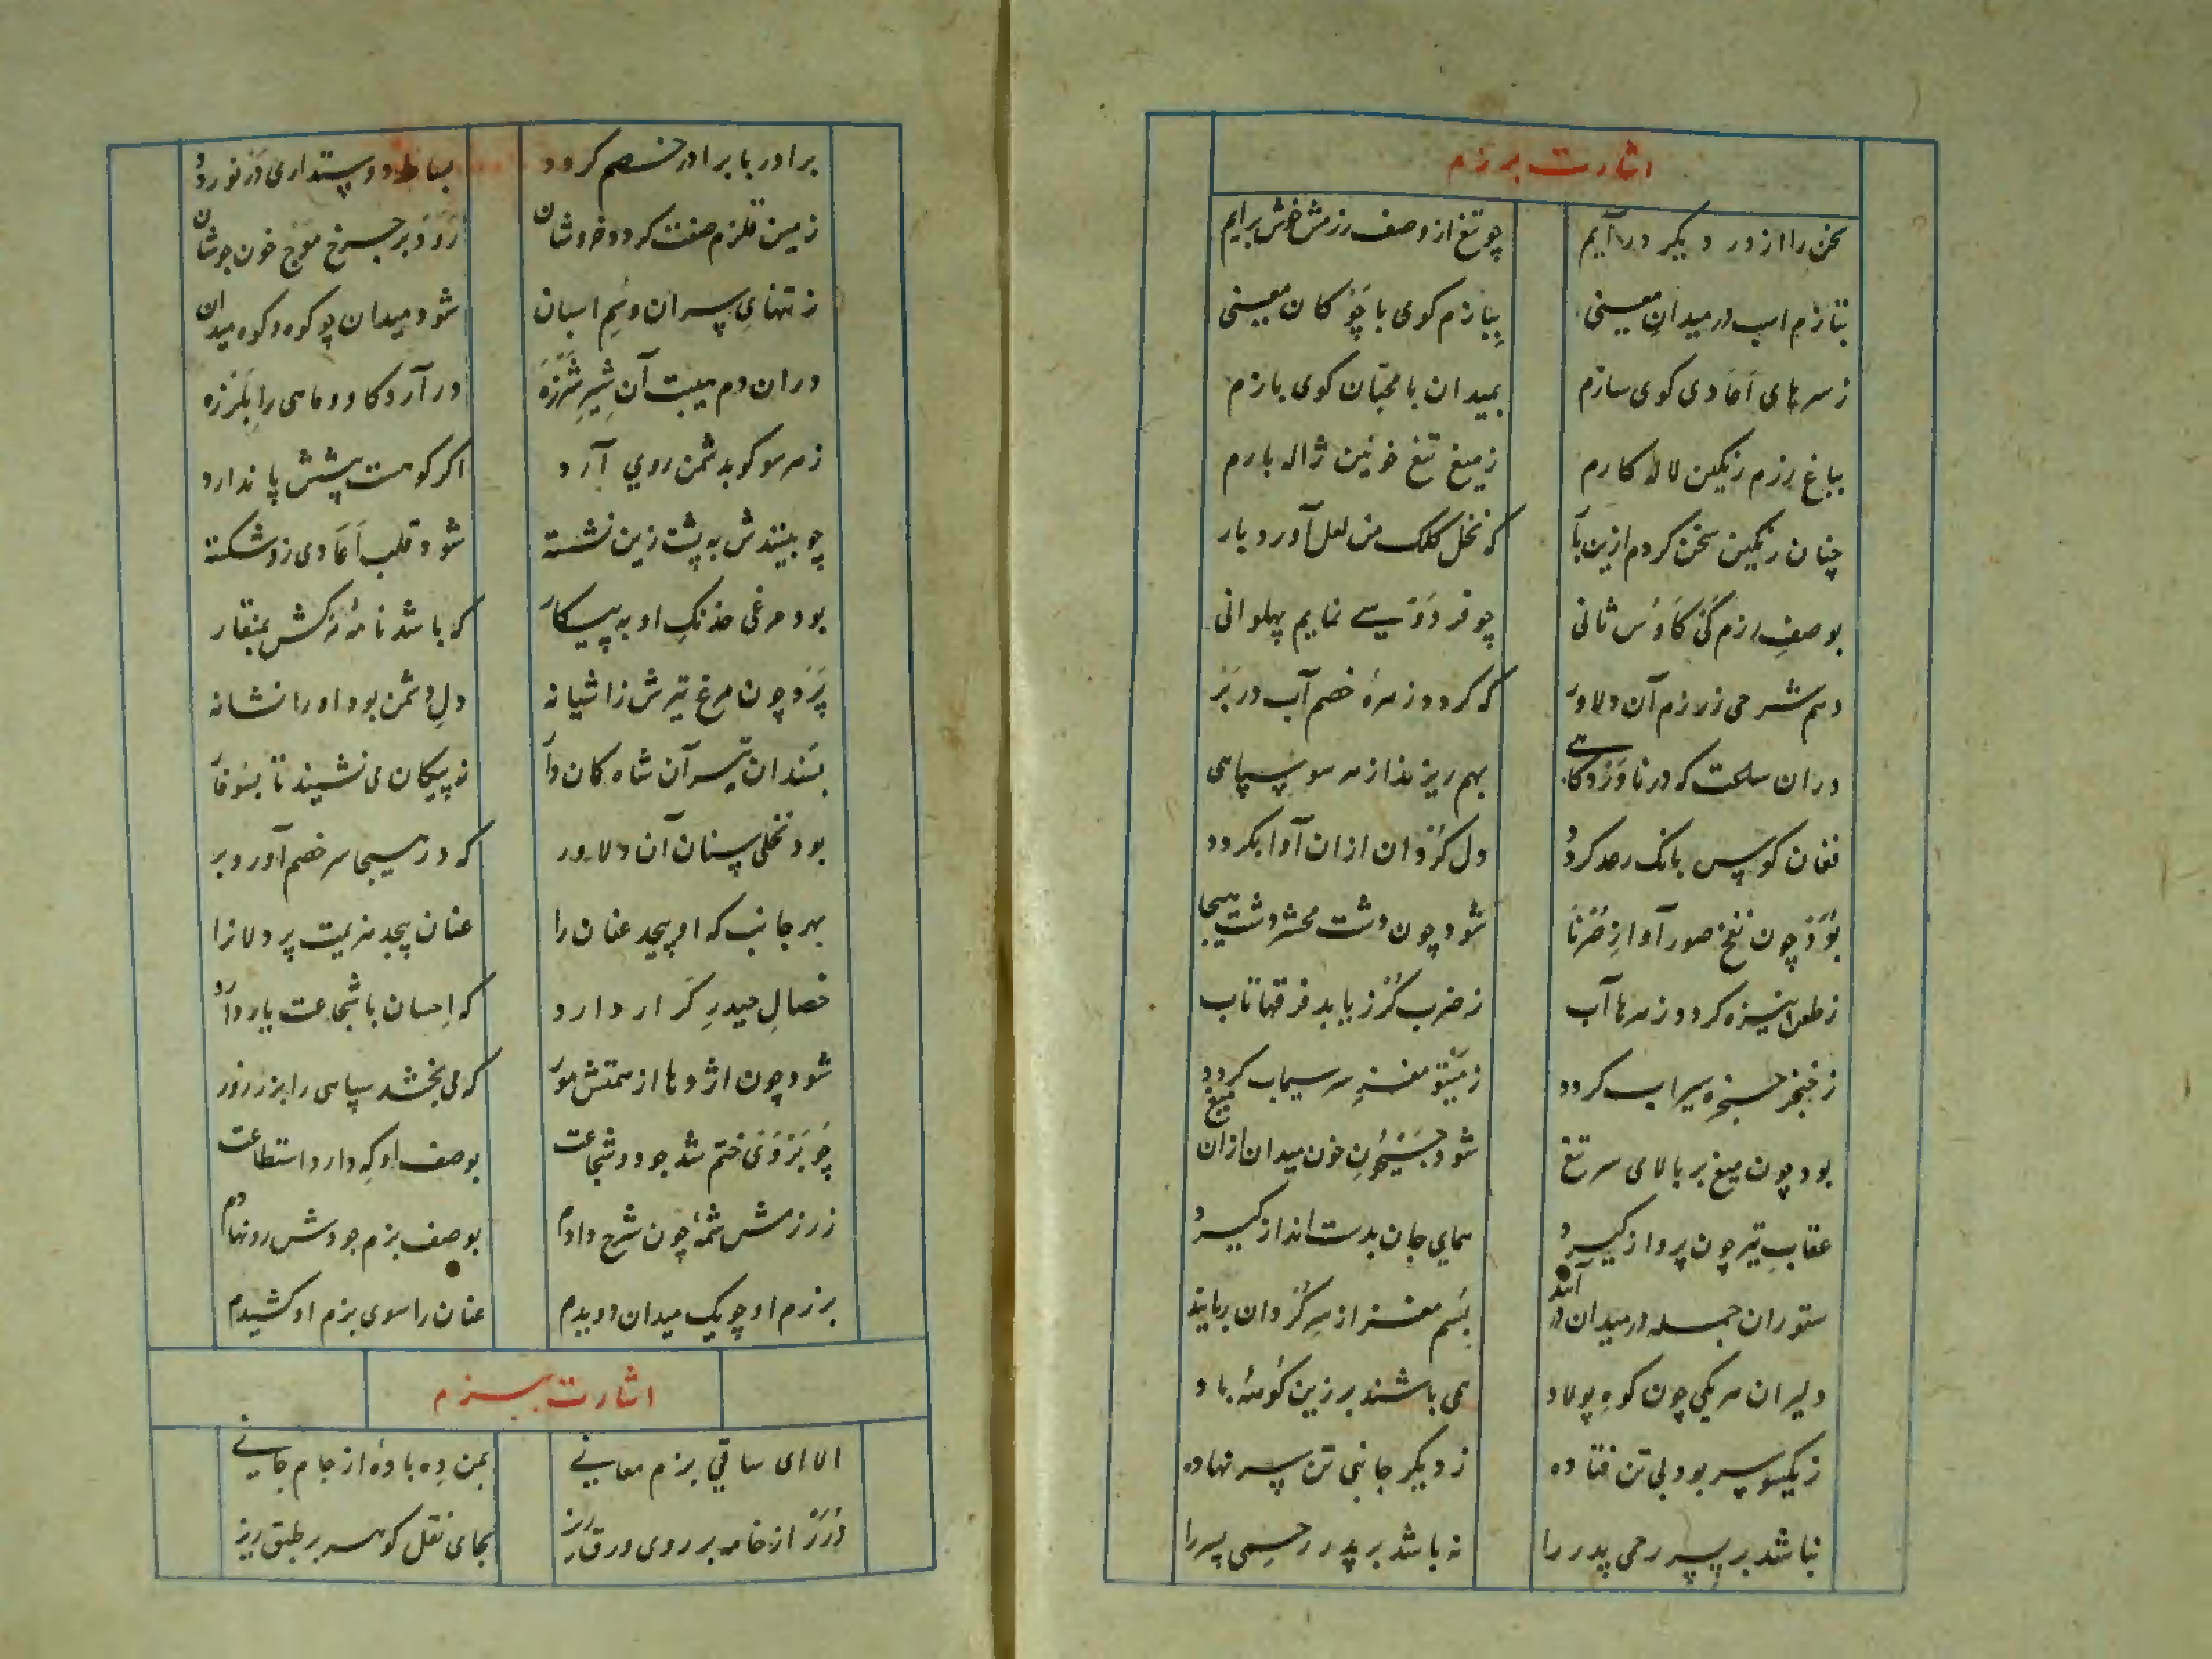 اشارت برزم
سخن را از در دیکر درآیم چو تیغ از وصف رزمش خوش برایم
بتازم اسب در میدان معینی بِبازم کوی با چَوْکان معینی
ز سرهای اَعادی کوی سازم بمیدان با محبّان کوی بازم
بباغ رزم رنکین لاله کارم ز میغ تیغ خونین ژاله بارم
چنان رنکین سخن کردم ازین با که نخل کلک من لعل آورد بار
بوصفِ رزم کَیْ کاوُس ثانی چو فردَوْسی نمایم پهلوانی
دهم شرحی ز رزم آن دلاوَر که کردد زهرهٔ خصم آب در بَر
دران ساعت که در ناوَرْدکاهی بهم ریزند از هر سو سپاهی
فغان کوس بانک رعد کردد دل کُرْدان ازان آوا بکردد
بُوَدْ چون نفخ صور آوازِ صُرْنا شود چون دشت محشر دشت هیجا
ز طعن نیزه کردد زهرها آب ز ضرب کُرْز یابد فرقها تاب
ز خنجر حنجره سیراب کردد ز مغزِ سر سیماب کردد
بود چون میغ بر بالای سر تیغ شود جَیْحُونِ خون میدان ازان میغ
عقابِ تیر چون پرواز کیرد همای جان بدست انداز کیرد
ستوران جمله در میدان در آیند بسُم مغز از سرِ کُرْدان ربایند
دلیران هر یکی چون کوهِ پولاد همی باشند بر زین کُوههٔ باد
ز یکسو سر بود بی تن فتاده ز دیکر جانبی تن سر نهاده
نباشد بر پسر رحمی پدر را نه باشد بر پدر رحمی پسر را
برادر با برادر خصم کردد بساط دوستداری در نوردد
زمین قلزم صفت کردد خروشان رَوَدْ بر چرخ موْج خون جوشان
ز تنهایِ سران و سُم اسبان شود میدان چو کوه و کوه میدان
دران دم هیبت آن شیرِ شَرْزه در آرد کاو و ماهی را بِلَرْزه
ز هر سو کو بدشمن روی آرد اکر کوهست پیشش پا ندارد
چو بینندش به پشت زین نشسته شود قلب اَعادی زو شکسته
بود مرغی خدنکِ او به پیکار که باشد نامهٔ مرکش بمنقار
پَرَد چون مرغ تیرش ز اشیانه دلِ دشمن بود او را نشانه
بسندان تیر آن شاه کمان دار نه پیکان می نشیند تا بسوفار
بود نخلی سنان آن دلاور که در هیجا سر خصم آورد بر
بهر جانب که او پیچد عنان را عنان پیچد هزیمت پر دلانرا
خصالِ حیدرِ کَرّار دارد که اِحسان با شجاعت یار دارد
شود چون اژدها از همتش مور که می بخشد سپاهی را بزر زور
چو بَرْ وَیْ ختم شد جود و شجاعت بوصف او کِه دارد استطاعت
ز رزمش شمّهٔ چون شرح دادم بوصف بزم جودش رو نهادم
برزم او چو یک میدان دویدم عنان را سوی بزم او کشیدم
اشارت ببزم
الا ای ساقی بزم معانی بمن دِه بادهٔ از جام جانی
دُرَرْ از خامه بر روی ورق ریز بجای نقل کوهر بر طبق ریز